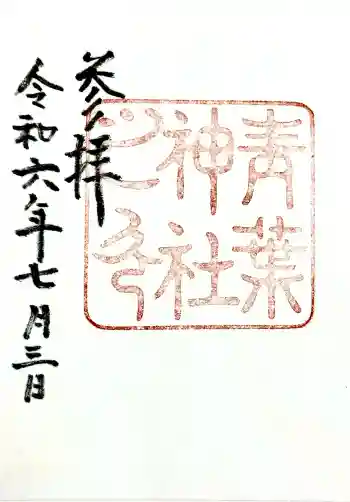 青葉
神社
之印
参拝
令和六年七月三日